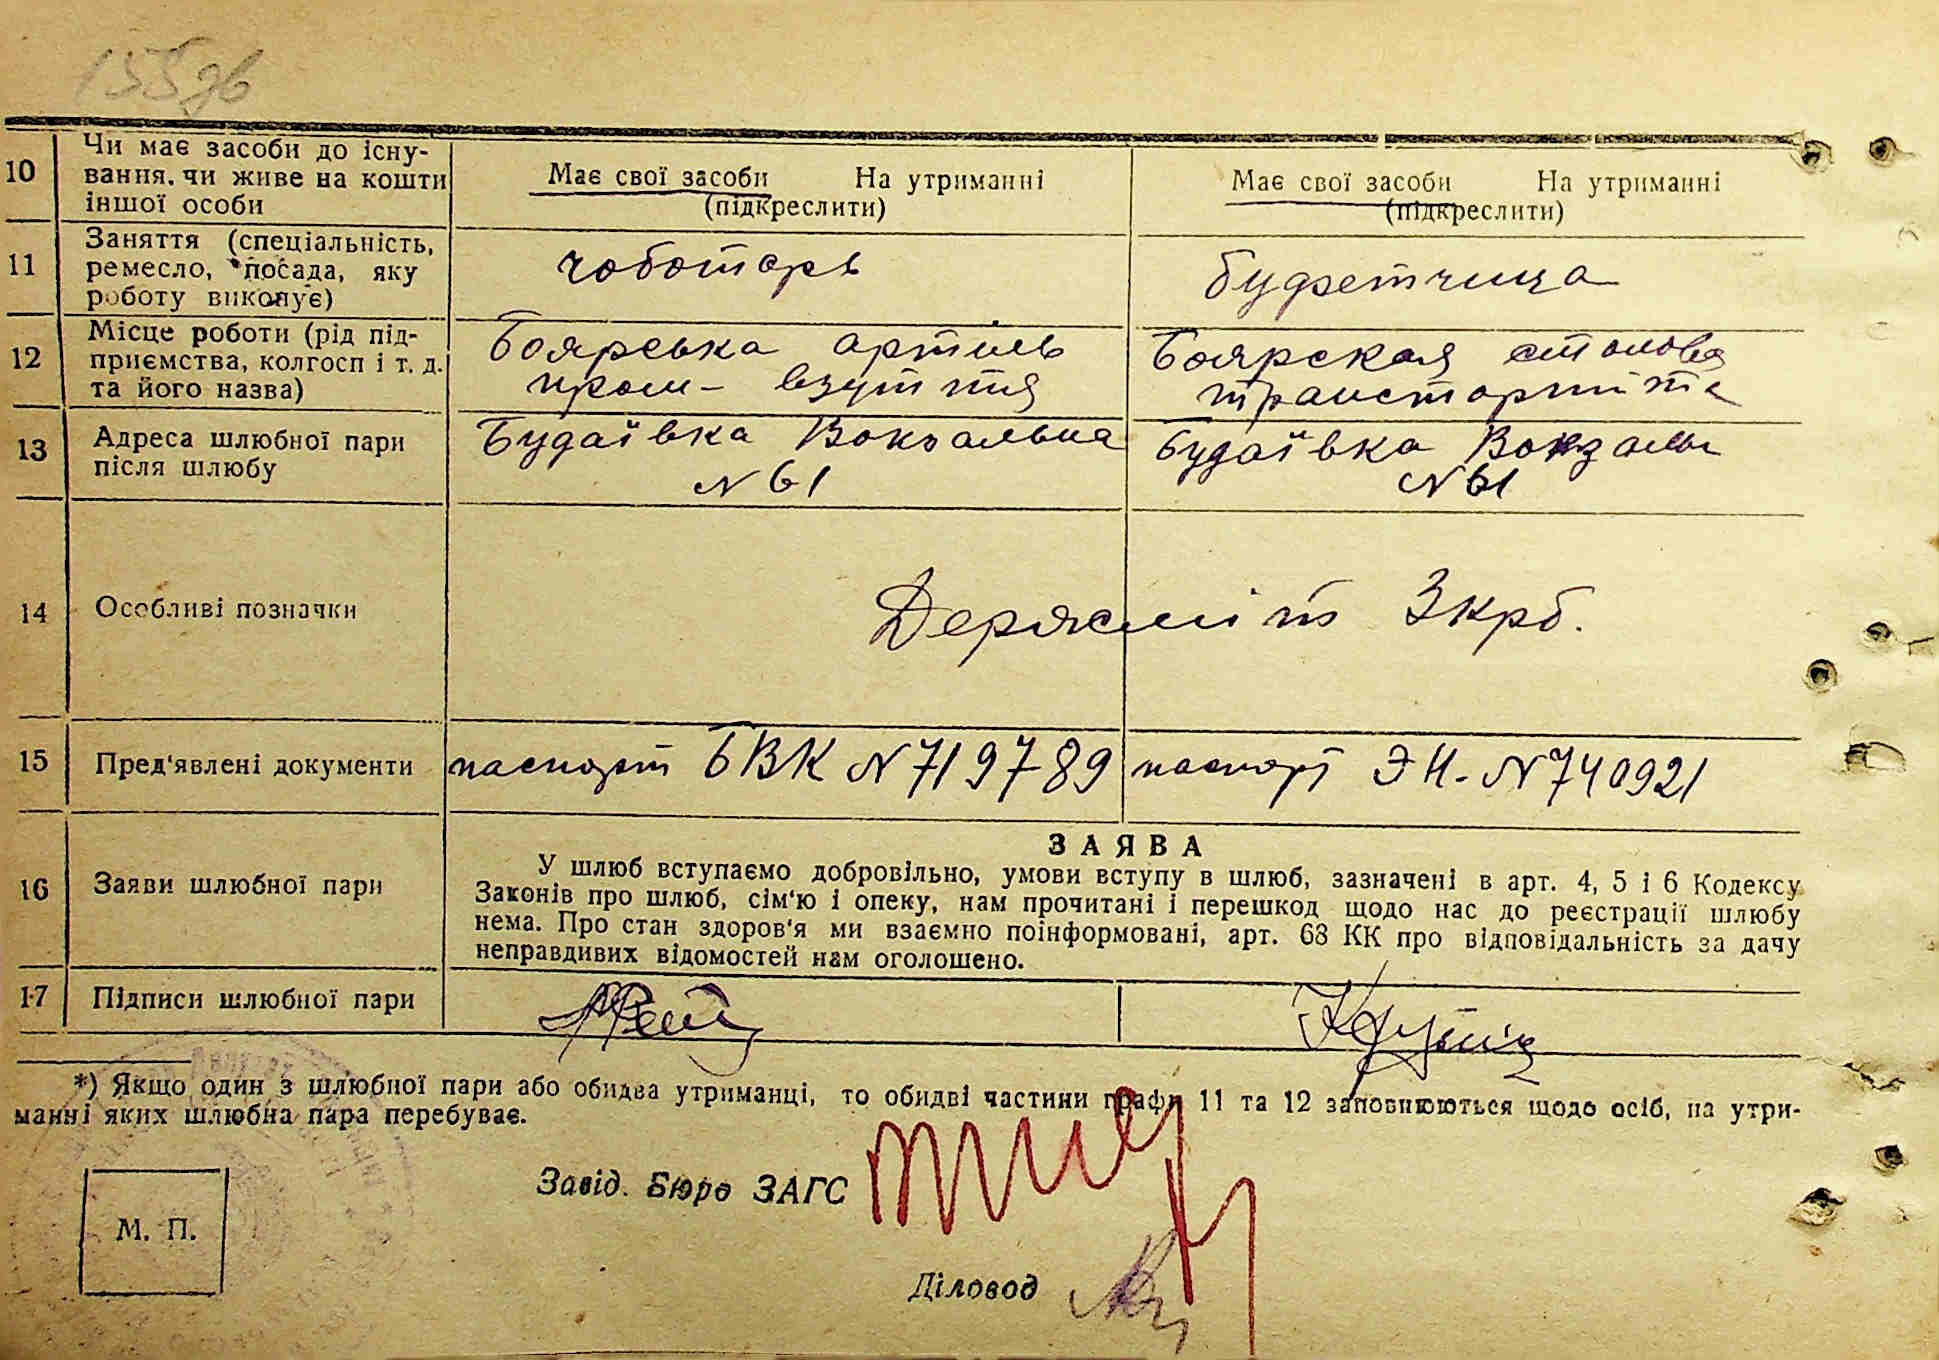 155 дв
10
Чи має засоби до існу-
вання, чи живе на кошти
іншої особи
Має свої засоби На утриманні
(підкреслити)
Має свої засоби На утриманні
(підкреслити)
11
Заняття (спеціальність,
ремесло, посада, яку
роботу виконує)
чоботарь
буфетчица
12
Місце роботи (рід під-
приємства, колгосп і т. д.
та його назва)
Боярська артиль
пром- взуття
Боярская столова
13
Адреса шлюбної пари
після шлюбу
Будаївка Вокзальна
N 61
Будаївка Вокзальн
N 61
14
Особливі позначки
Держмито 3крб.
15
Пред'явлені документи
паспорт БВК N 719789
паспорт ЭН- N 740921
16
Заяви шлюбної пари
ЗАЯВА
У шлюб вступаємо добровільно, умови вступу в шлюб, зазначені в арт. 4, 5 і 6 Кодексу
Законів про шлюб, сім'ю і опеку, нам прочитані і перешкод щодо нас до реєстрації шлюбу
нема. Про стан здоров'я ми взаємно поінформовані, арт. 63 КК про відповідальність за дачу
неправдивих відомостей нам оголошено.
17
Підписи шлюбної пари
*) Якщо один з шлюбної пари або обидва утриманці, то обидві частини графи 11 та 12 заповнюються щодо осіб, на утри-
манні яких шлюбна пара перебуває.
Завід. Бюро ЗАГС
М. П.
Діловод